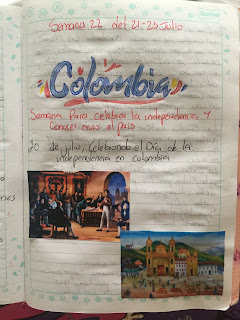 Semana 22 del 21-25 Julio
Colombia
Semana Para celebrar la independencia y
Conocer mas el pais
20 de julio, Celebrando el Día de la
independencia en colombia